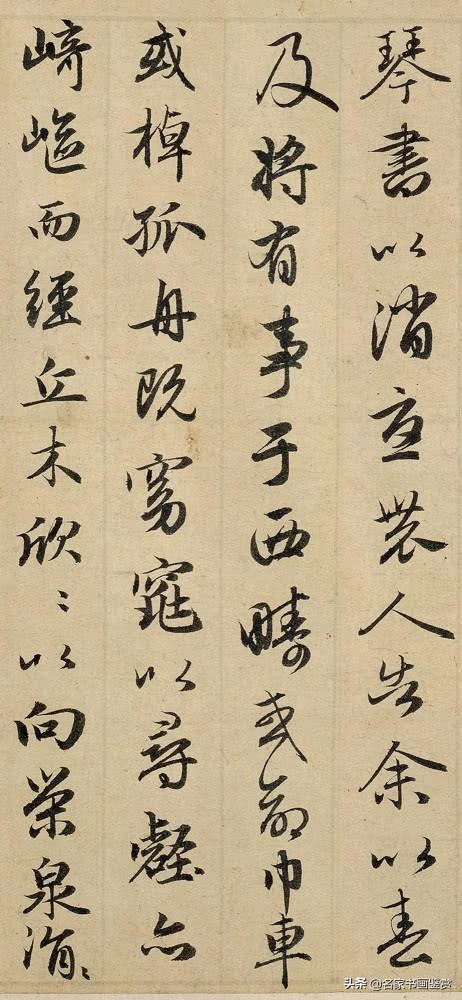 琴書以消憂農人告余以春
及將有事于西疇或命巾車
或棹孤舟既窈窕以尋壑亦
崎嶇而經丘木欣〻以向榮泉涓〻
头条 @名家书画鉴赏